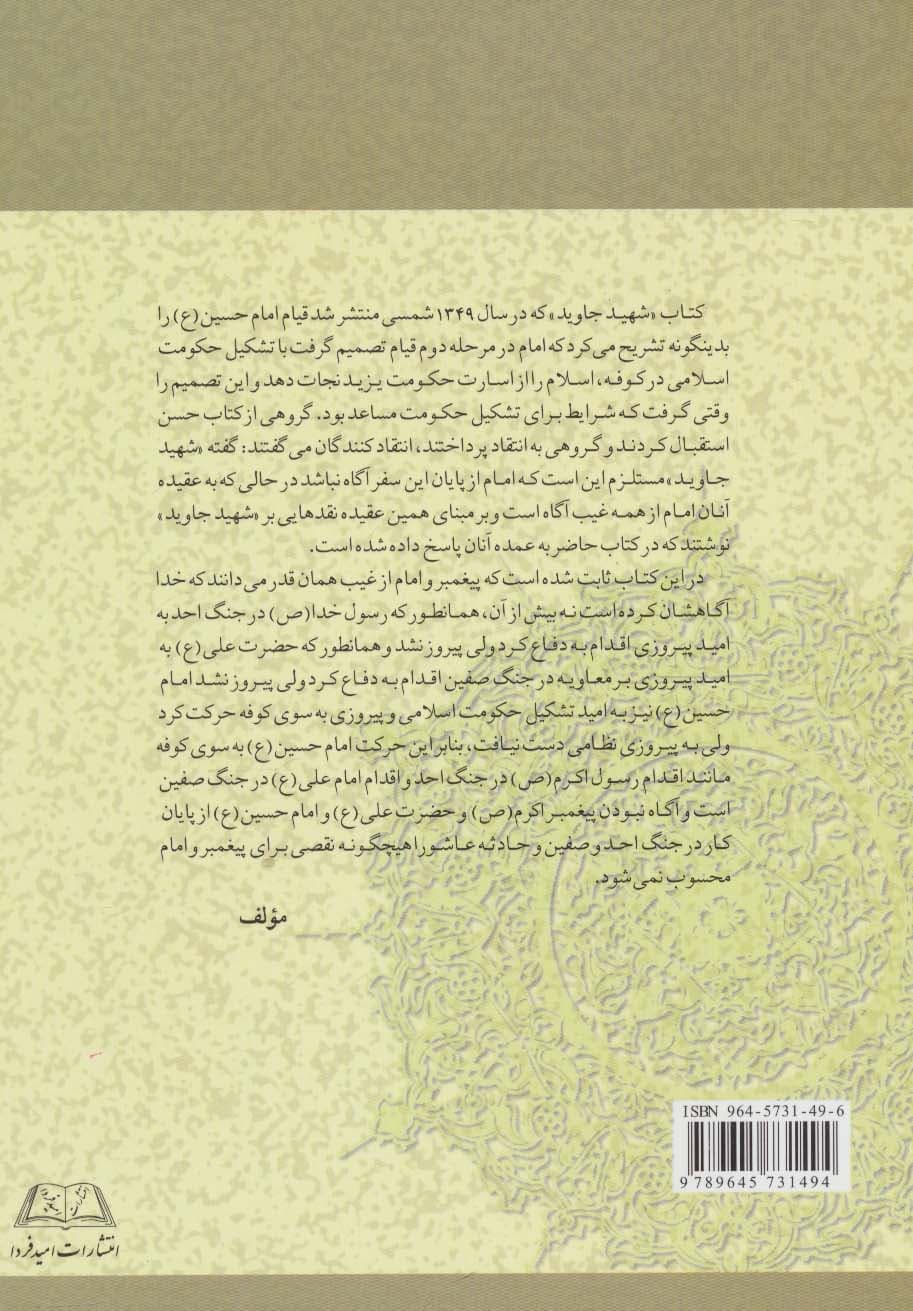 کتاب «شهید جاوید» که در سال ۱۳۴۹ شمسی منتشر شد قیام امام حسین(ع) را
بدینگونه تشریح می‌کرد که امام در مرحله دوم قیام تصمیم گرفت با تشکیل حکومت
اسلامی در کوفه، اسلام را از اسارت حکومت یزید نجات دهد و این تصمیم را
وقتی گرفت که شرایط برای تشکیل حکومت مساعد بود. گروهی از کتاب حسن
استقبال کردند و گروهی به انتقاد پرداختند، انتقاد کنندگان می‌گفتند: گفته «شهید
جاوید» مستلزم این است که امام از پایان این سفر آگاه نباشد در حالی که به عقیده
آنان امام از همه غیب آگاه است و بر مبنای همین عقیده نقدهایی بر «شهید جاوید»
نوشتند که در کتاب حاضر به عمده آنان پاسخ داده شده است.
در این کتاب ثابت شده است که پیغمبر و امام از غیب همان قدر می‌دانند که خدا
آگاهشان کرده است نه بیش از آن، همانطور که رسول خدا(ص) در جنگ احد به
امید پیروزی اقدام به دفاع کرد ولی پیروز نشد و همانطور که حضرت علی(ع) به
امید پیروزی بر معاویه در جنگ صفین اقدام به دفاع کرد ولی پیروز نشد امام
حسین(ع) نیز به امید تشکیل حکومت اسلامی و پیروزی به سوی کوفه حرکت کرد
ولی به پیروزی نظامی دست نیافت، بنابراین حرکت امام حسین(ع) به سوی کوفه
مانند اقدام رسول اکرم(ص) در جنگ احد و اقدام امام علی(ع) در جنگ صفین
است و آگاه نبودن پیغمبر اکرم(ص) و حضرت علی(ع) و امام حسین(ع) از پایان
کار در جنگ احد و صفین و حادثه عاشورا هیچگونه نقصی برای پیغمبر و امام
محسوب نمی‌شود.
مؤلف
ISBN 964-5731-49-6
9 789645 731494
انتشارات امید فردا